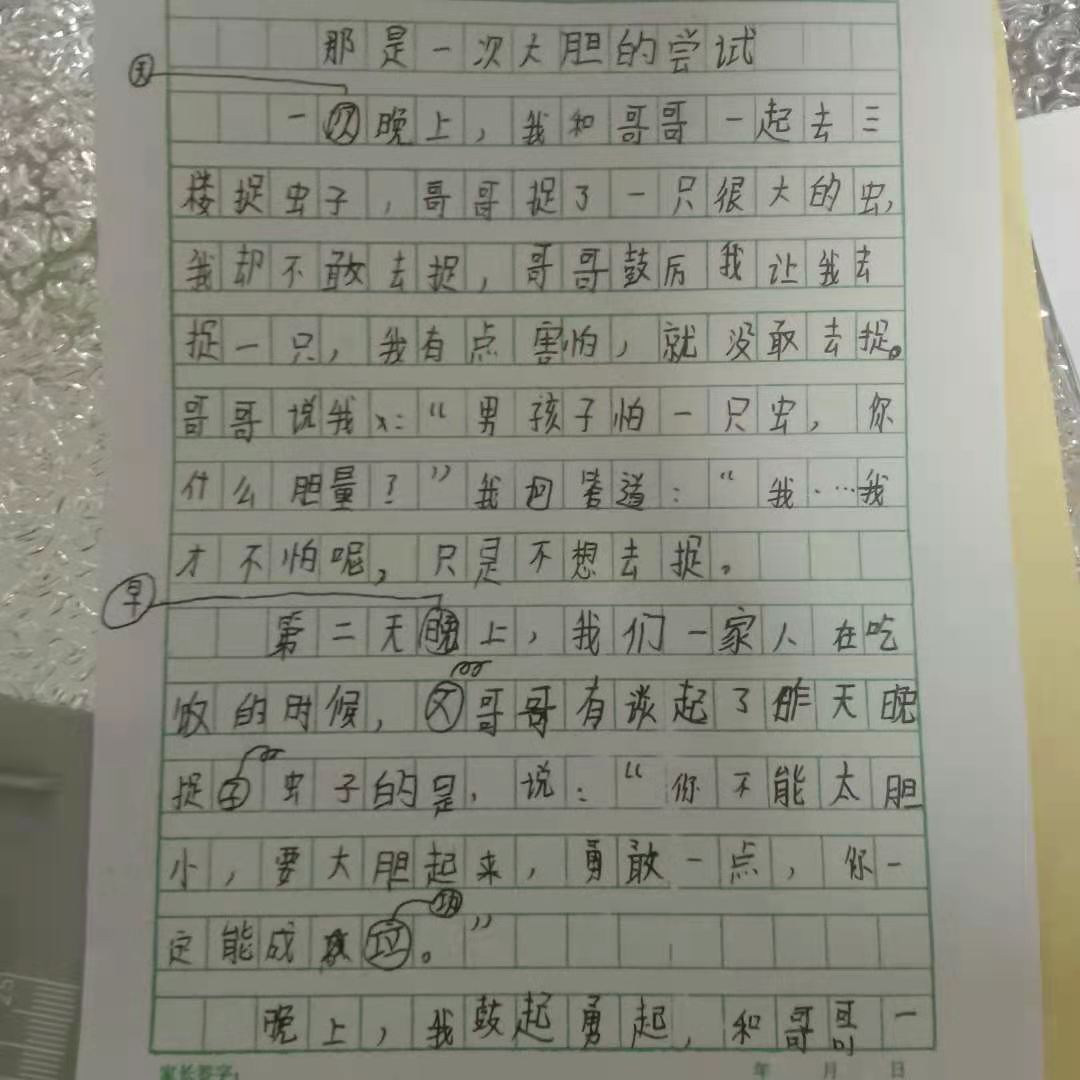 那是一次大胆的尝试
天
一次晚上，我和哥哥一起去三
楼捉虫子，哥哥捉了一只很大的虫，
我却不敢去捉，哥哥鼓厉我让我去
捉一只，我有点害怕，就没敢去捉。
哥哥说我：“男孩子怕一只虫，你
什么胆量？”我回答道：“我……我
才不怕呢，只是不想去捉。
早
第二天晚上，我们一家人在吃
饭的时候，哥哥有谈起了昨天晚
捉虫子的是，说：“你不能太胆
小，要大胆起来，勇敢一点，你一
功
定能成。”
晚上，我鼓起勇起，和哥哥一
家长签字： 年 月 日